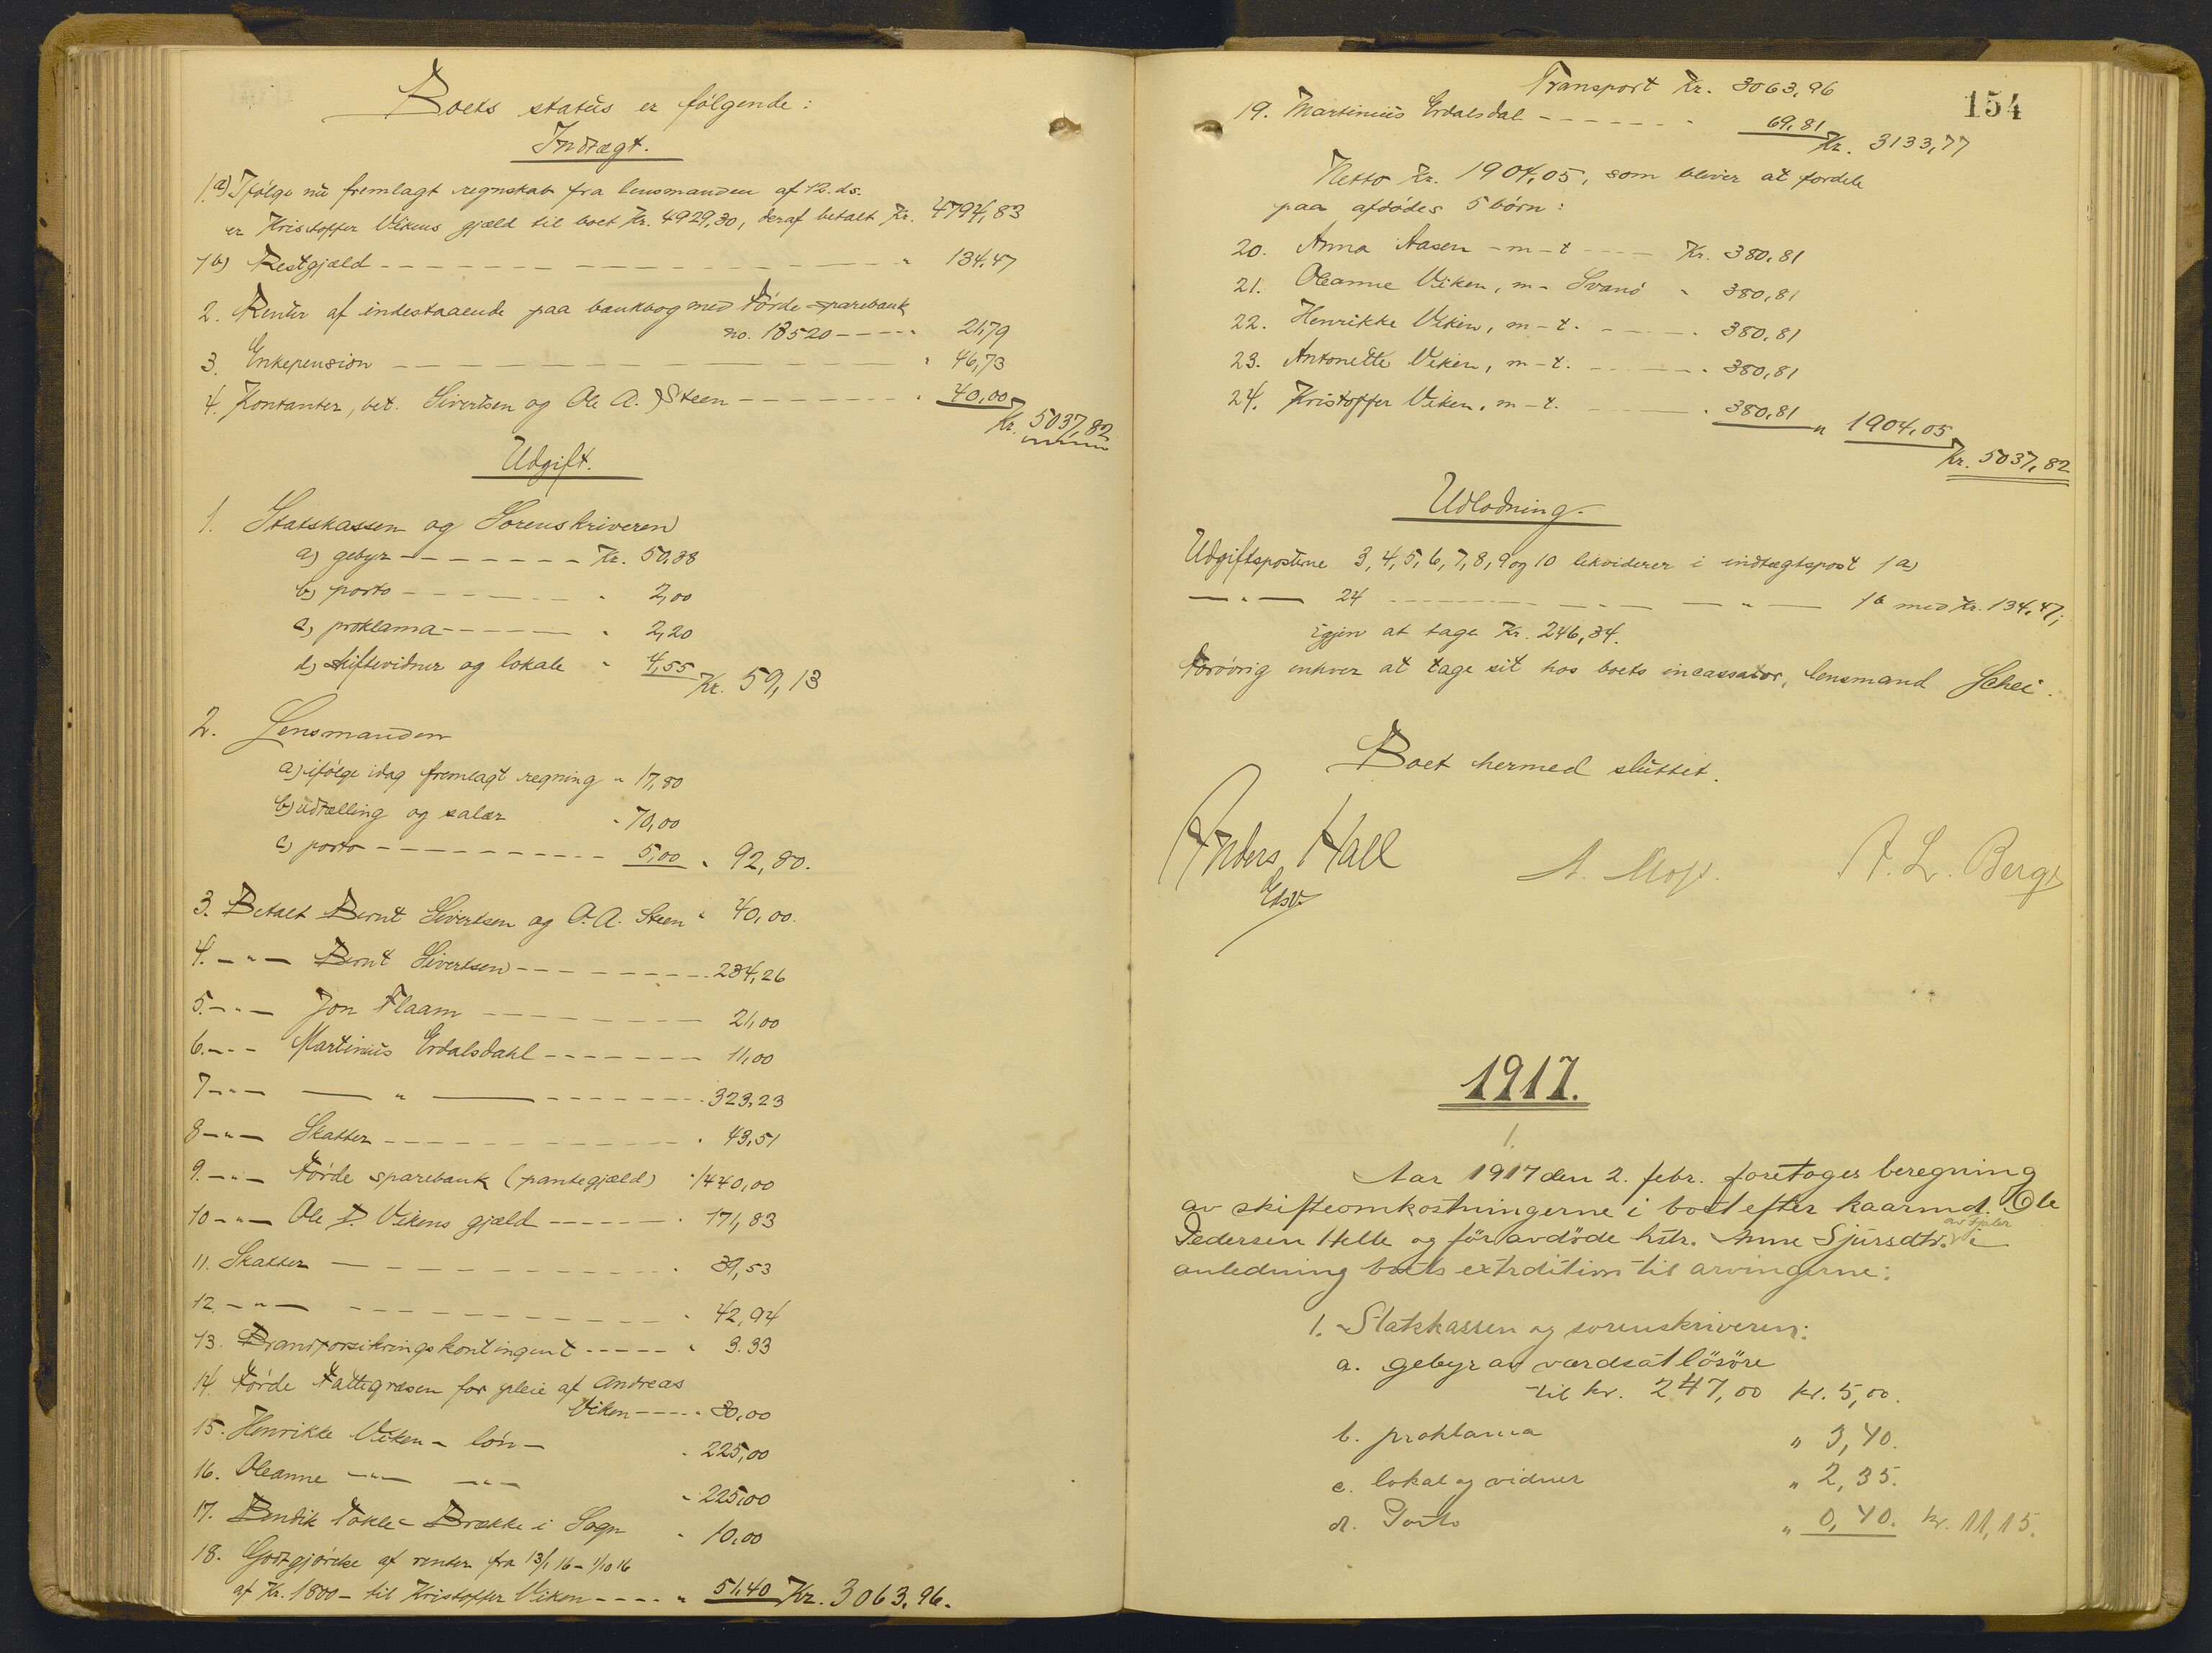 Boets status er følgende:
Indtægt.
1.a) Ifølge nu fremlagt regnskab fra lensmanden af 12. ds.
er Kristoffer Vikens gjæld til boet Kr. 4929,30, deraf betalt Kr. 4794,83
1b) Restgjæld - - - " 134,47
2. Renter af indestaaende paa bankbog med Førde sparebank
no. 18520 - - - " 21,79
3. Enkepension - - - " 46,73
4. Kontanter, bet. Sivertsen og Ole A. Steen - - - " 40,00
Kr. 5037,82
Udgift.
1. Statskassen og Sorenskriveren
a) gebyr - - - Kr. 50,38
b) porto - - - " 2,00
c) proklama - - - " 2,20
d) skiftevidner og lokale " 4,55
Kr. 59,13
2. Lensmanden
a) ifølge idag fremlagt regning " 17,80
b) udtælling og salær " 70,00
c) porto - - - 5,00 " 92,80.
3. Betalt Bernt Sivertsen og O. A. Steen " 40,00.
4. - " - Bernt Sivertsen - - - 284,26
5. - " - Jon Flaam - - - 21,00
6. - - - Martinius Erdalsdahl - - - 11,00
7 - " - — " — - - - 323,23
8 - " - Skatter - - - " 43,51
9. - " - Førde sparebank (pantegjæld) " 1440,00
10 - " - Ole P. Vikens gjæld - - - " 171,83
11. Skatter - - - " 39,53
12. - " - - - - " 42,94
13. Brandforsikringskontingent - - - " 3.33
14. Førde Fattigvæsen for pleie af Andreas
Viken - - - " 30,00
15. Henrikke Viken - løn - " 225,00
16. Oleanne - " - - " - " 225,00
17. Bendik Tokle - Brekke i Sogn " 10,00
18. Godtgjørelse af renter fra 13/1 16 - 1/10 16
af Kr. 1800 - til Kristoffer Viken - - - " 51,40 Kr. 3063,96.
154
Transport Kr. 3063,96
19. Martinius Erdalsdal - - - " 69,81
Kr. 3133,77
Netto Kr. 1904,05, som bliver at fordele
paa afdødes 5 børn:
20. Anna Aasen - m - t - - - Kr. 380,81
21. Oleanne Viken, m - Svanø " 380,81
22. Henrikke Viken, m - t. - - - " 380,81
23. Antonette Viken, m - t. - - - " 380,81
24. Kristoffer Viken, m - t. - - - " 380,81 " 1904,05
Kr. 5037,82
Udlodning.
Udgiftsposterne 3, 4, 5, 6, 7, 8, 9 og 10 likviderer i indtægtspost 1a)
— " — 24 - - - — " — — " — 1b med Kr. 134,47;
igjen at tage Kr. 246,34.
Forøvrig enhver at tage sit hos boets incassator, lensmand Schei.
Boet hermed sluttet.
Anders Hall
A. L. Berge
1917.
1.
Aar 1917 den 2. febr. foretoges beregning
av skifteomkostningerne i boet efter kaarmd. Ole
Pedersen Helle og før avdøde hstr. Anne Sjursdtr. av Fjaler i
anledning boets extradition til arvingerne:
1. Statskassen og sorenskriveren:
a. gebyr av værdsat løsøre
til kr. 247,00 kr. 5,00.
b. proklama " 3,40.
c. lokal og vidner " 2,35.
d. Porto " 0,40. kr. 11,15.